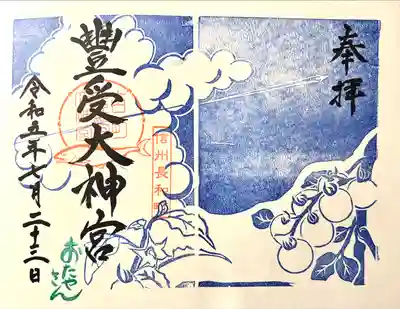 奉拝
豊受大神宮
信州長和町
令和五年七月二十三日
おたやさん